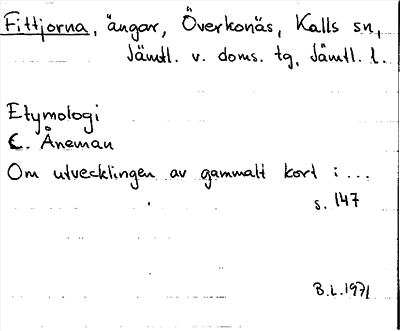 Fittjorna, ängar, Överkonäs, Kalls sn,
Jämtl. v. doms. tg, Jämtl. l.
Etymologi
C. Åneman
Om utvecklingen av gammalt kort i ...
s. 147
B.L. 1971